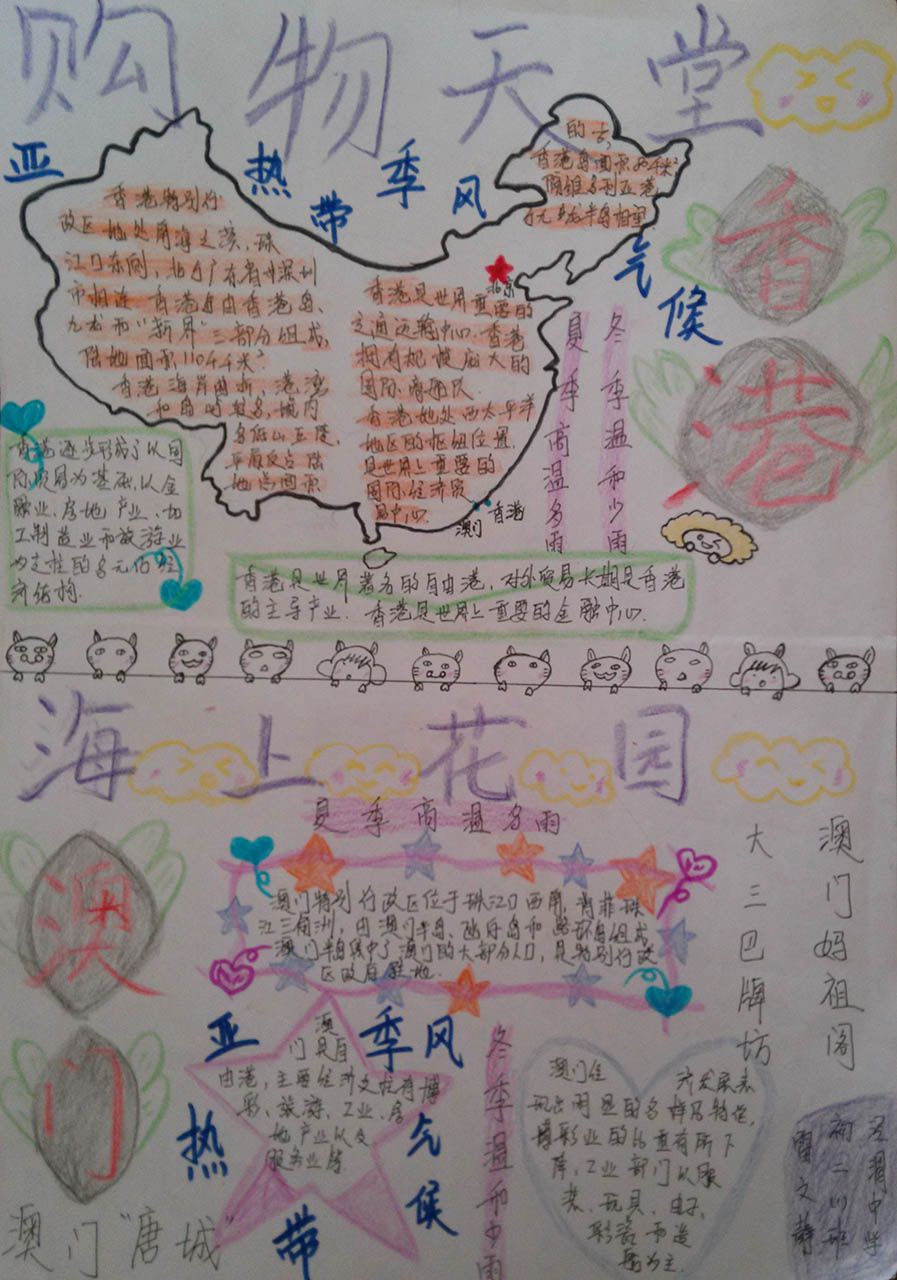 购物天堂
亚热带季风气候
香港
香港特别行
政区地处南海之滨，珠
江口东侧，北与广东省中深圳
市相连 香港岛由香港岛、
九龙和“新界”三部分组成，
陆地面积1104千米²
香港海岸曲折，港湾
和岛屿较多，境内
多低山丘陵，
平原仅占陆
地总面积
的
香港岛面积
香港是世界重要的
交通运输中心。香港
拥有规模庞大的
国际
香港地处西太平洋
地区的枢纽位置，
是世界上重要的
国际经济贸
易中心。
北京
澳门
香港
夏季高温多雨
冬季温和少雨
香港逐步形成了以国
际贸易为基础，以金
融业、房地产业、加
工制造业和旅游业
为支柱的多元化经
济结构。
香港是世界著名的自由港，对外贸易长期是香港
的主导产业。香港是世界上重要的金融中心。
海上花园
夏季高温多雨
澳门
澳门特别行政区位于珠江口西岸，背靠珠
江三角洲，由澳门半岛、氹仔岛和路环岛组成
澳门半岛集中了澳门的大部分人口，是特别行政
区政府驻地.
澳门妈祖阁
大三巴牌坊
亚热带季风气候
澳
门是自
由港，主要经济支柱有博
彩、旅游、工业、房
地产业以及
服务业等
冬季温和少雨
澳门经济发展表
现出明显的多样及特征，
博彩业的比重有所下
降，工业部门以服
装、玩具、电子、
彩瓷和造
为主.
澳门“唐城”
中学
初二(1)班
雷文静